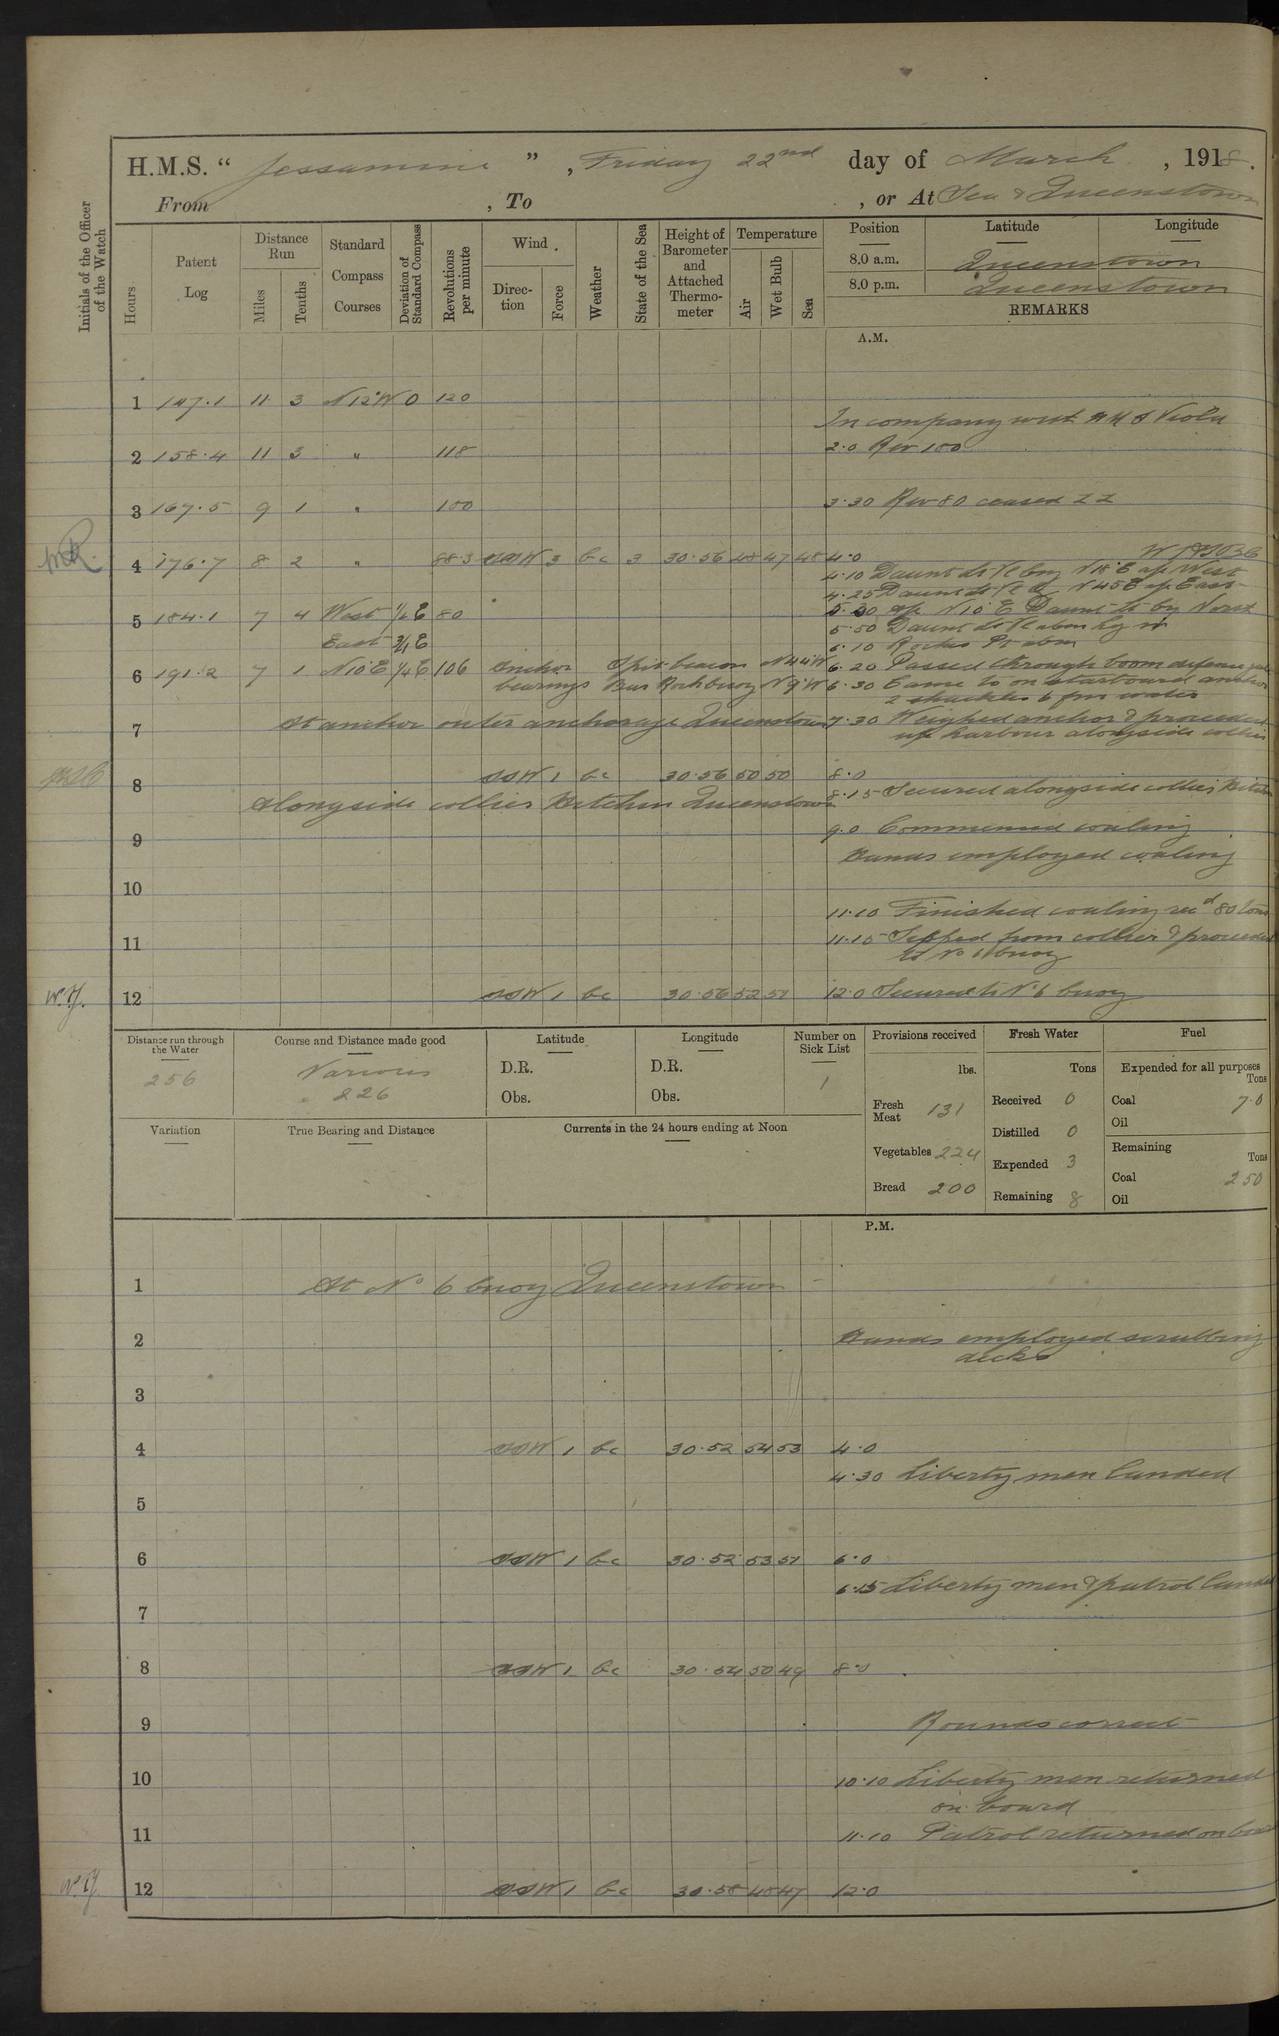 H.M.S. “ Jessamine ” , Friday 22nd day of March , 1918.
From , To , or At Sea & Queenstown
Initials of the Officer of the Watch
Hours
Patent Log
Distance Run
Miles
Tenths
Standard Compass Courses
Deviation of Standard Compass
Revolutions per minute
Wind
Direction
Force
Weather
State of the Sea
Height of Barometer and Attached Thermometer
Temperature
Air
Wet Bulb
Sea
Position Latitude Longitude
8.0 a.m. Queenstown
8.0 p.m. Queenstown
REMARKS
A.M.
1 147.1 11 3 N12°W 0 120
In company with HMS Viola
2 158.4 11 3 " 118 2.0 Rev 100
3 167.5 9 1 " 100 3.30 Rev 80 ceased ZZ
4 176.7 8 2 " 88.3 SSW 3 bc 3 30.56 48 47 48 4.0
4.10 Daunts Lt Vl brg N18°E a/c West
4.25 Daunts Lt Vl N45E a/c East
5 184.1 7 4 West 1/2 E 80 5.20 a/c N10°E Daunt Lt by North
East 3/4 E 5.50 Daunt Lt Vl abm
6.10 Roches Pt abm
6 191.2 7 1 N10°E 1/4 E 106 Anchor Spit beacon N44°W 6.20 Passed through boom defence
bearings Bar Rock buoy N9°W 6.30 Came to on starboard anchor
2 shackles 6 fm water
7 At anchor outer anchorage Queenstown 7.30 Weighed anchor & proceeded
up harbour alongside collier
8 SSW 1 bc 30.56 50 50 8.0
Alongside collier Queenstown 8.15 Secured alongside collier
9 9.0 Commenced coaling
Hands employed coaling
10
11.10 Finished coaling recd 80 tons
11 11.15 Slipped from collier & proceeded
to No 6 buoy
12 SSW 1 bc 30.56 52 51 12.0 Secured to No 6 buoy
Distance run through the Water
256
Course and Distance made good
Various
226
Latitude
D.R.
Obs.
Longitude
D.R.
Obs.
Number on Sick List
1
Provisions received
lbs.
Fresh Meat 131
Vegetables 224
Bread 200
Fresh Water
Tons
Received 0
Distilled 0
Expended 3
Remaining 8
Fuel
Expended for all purposes
Tons
Coal 7.0
Oil
Remaining
Tons
Coal 250
Oil
Variation
True Bearing and Distance
Currents in the 24 hours ending at Noon
P.M.
1 At No 6 buoy Queenstown
2 Hands employed scrubbing
decks
3
4 SSW 1 bc 30.52 54 53 4.0
4.30 Liberty men landed
5
6 SSW 1 bc 30.52 53 51 6.0
6.15 Liberty men & patrol landed
7
8 SSW 1 bc 30.54 50 49 8.0
9 Rounds correct
10 10.10 Liberty men returned
on board
11 11.10 Patrol returned on board
12 SSW 1 bc 30.58 48 47 12.0